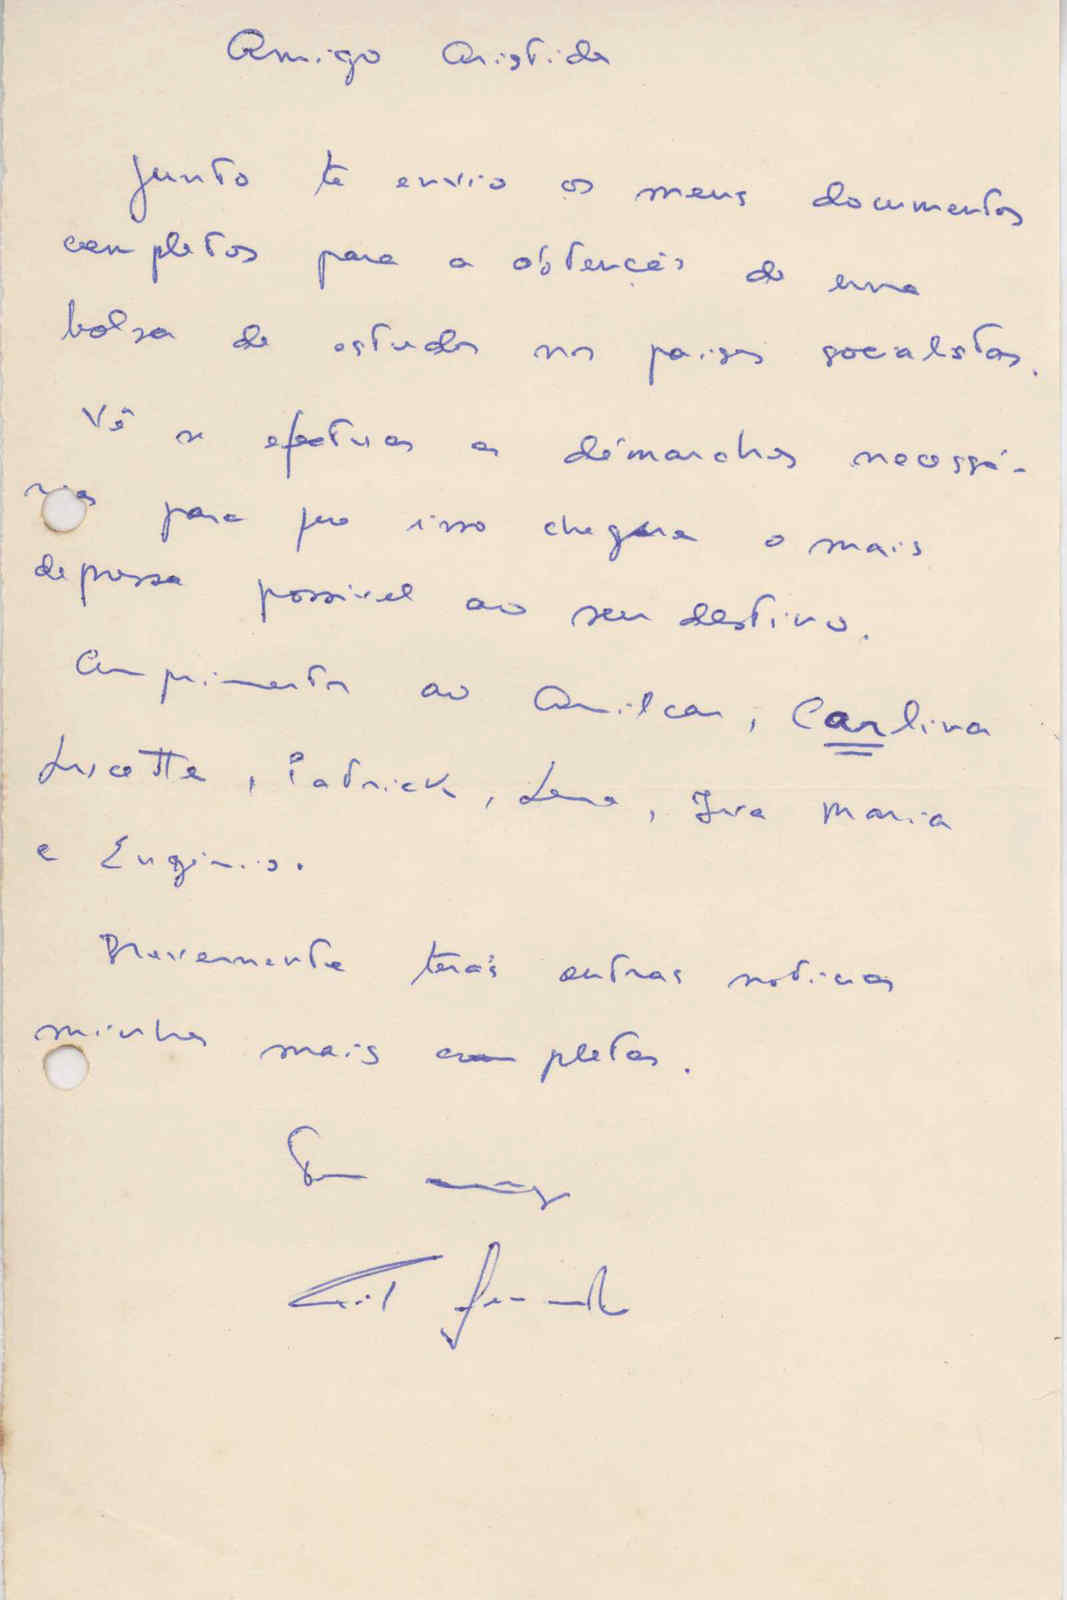 Amigo Aristides
Junto te envio os meus documentos
completos para a obtenção de uma
bolsa de estudos nos países socialistas.
Vê se efectuas as démarches necessá-
rias para que isso chegue o mais
depressa possivel ao seu destino.
Cumprimentos ao Amilcar, Carlina
Lucette, Patrick, Lena, Iva Maria
e Eugénio.
Brevemente terás outras noticias
minhas mais completas.